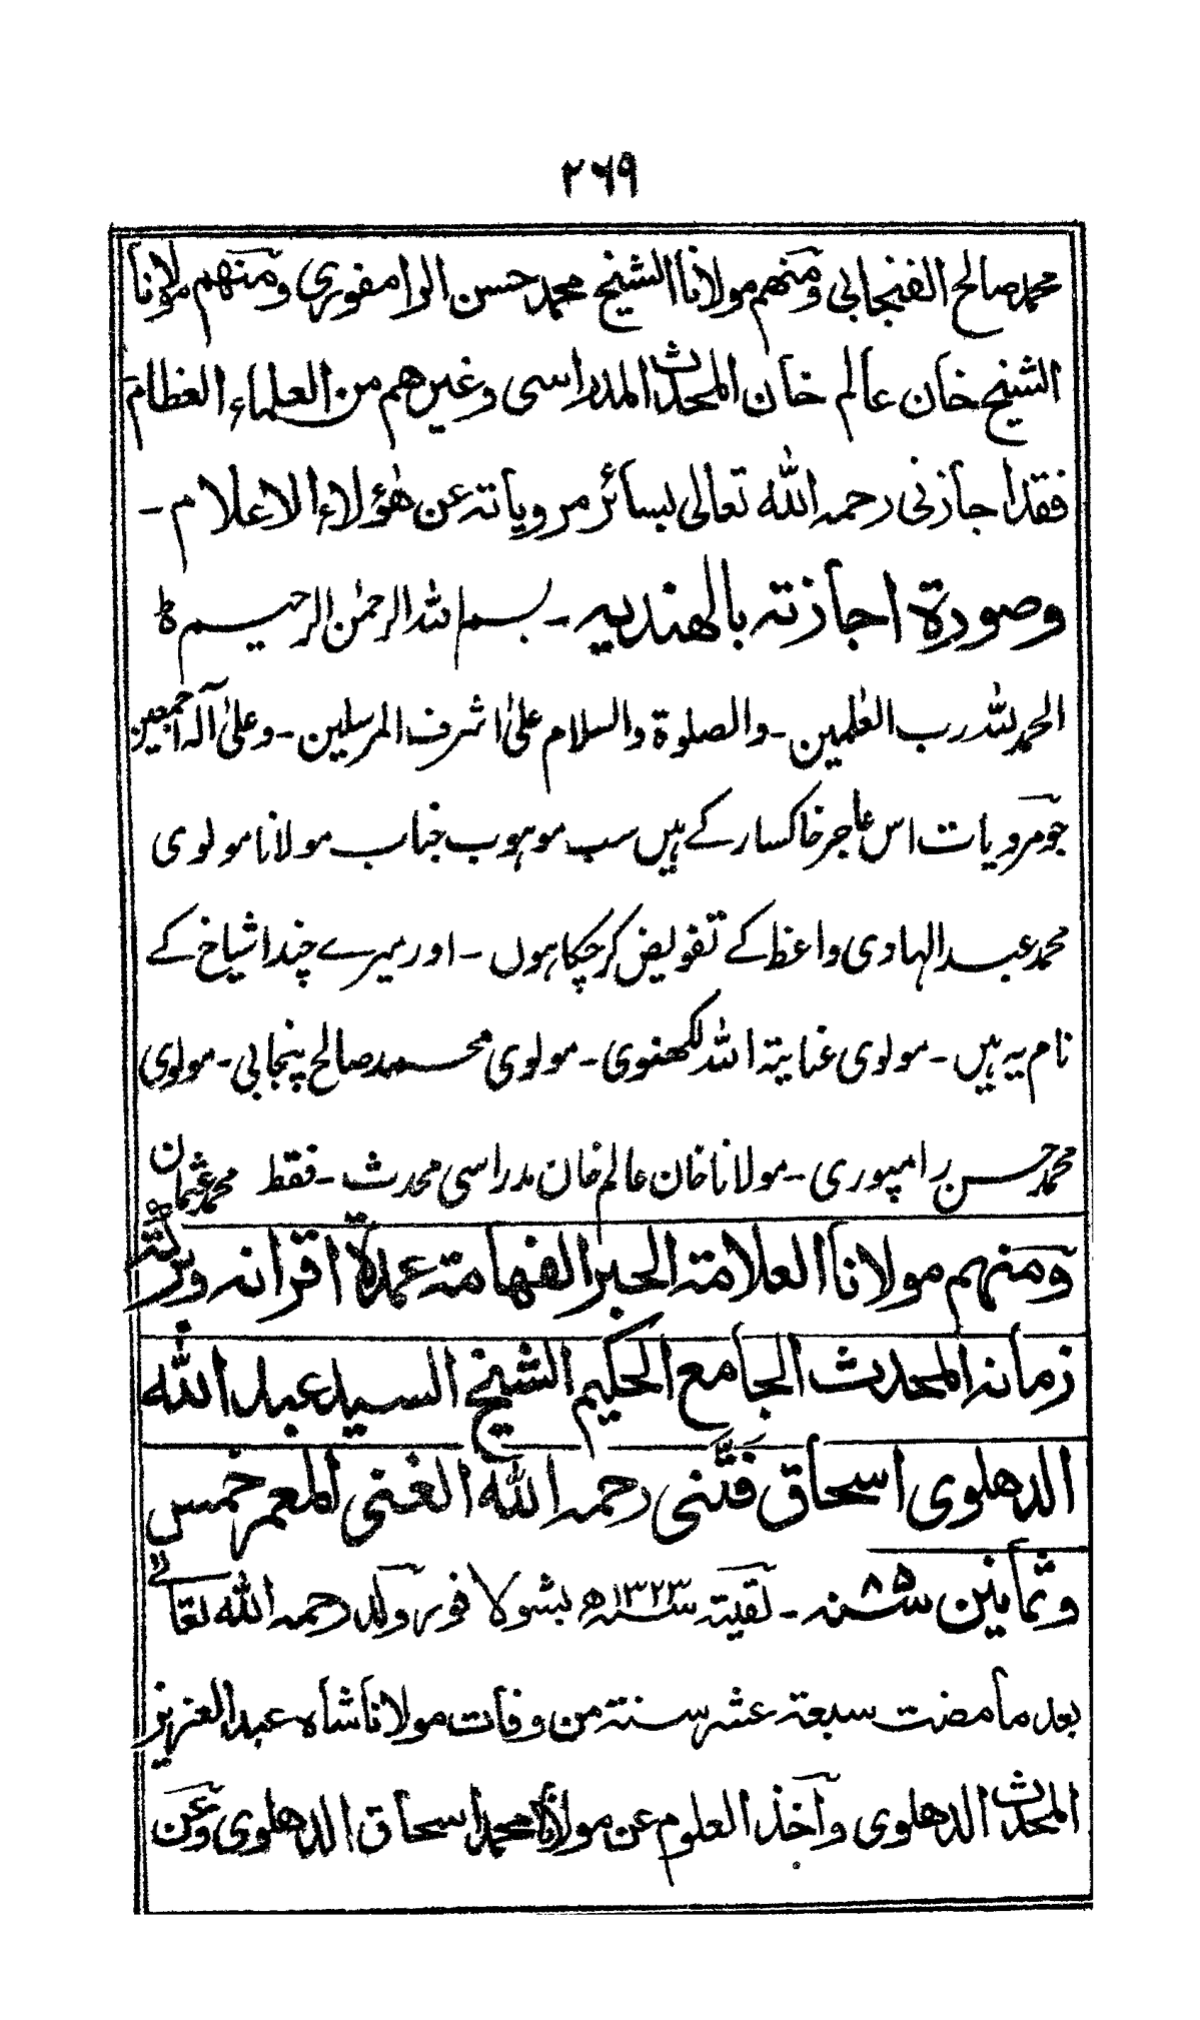 ٢٦٩
محمد صالح الفنجابی ومنهم مولانا الشیخ محمد حسن الرامفوری ومنهم مولانا
الشیخ خان عالم خان المحدث المدراسی وغیرهم من العلماء العظام
فقد اجازنی رحمه الله تعالی بسائر مرویاته عن هٰؤلاء الاعلام ۔
وصورة اجازته بالهندیه ۔ بسم الله الرحمٰن الرحیم ط
الحمد لله رب العٰلمین ۔ والصلوة والسلام علیٰ اشرف المرسلین ۔ وعلیٰ آله اجمعین
جو مرویات اس عاجز خاکسار کے ہیں سب موہوب جناب مولانا مولوی
محمد عبد الہادی واعظ کے تفویض کرچکا ہوں ۔ اور میرے چند اشیاخ کے
نام یہ ہیں ۔ مولوی عنایتہ اللہ لکھنوی ۔ مولوی محمد صالح پنجابی ۔ مولوی
محمد حسن رامپوری ۔ مولانا خان عالم خان مدراسی محدث ۔ فقط محمد عثمان
ومنهم مولانا العلامة الحبر الفهامة عمدة اقرانه
زمانه المحدث الجامع الحکیم الشیخ السید عبد الله
الدهلوی اسحاق فَتَنی رحمه الله الغنی المعمر خمس
وثمانین ٨٥ سنه ۔ لقیته سنه ١٣٢٣ھ ببشولافور ولد رحمه الله تعالیٰ
بعد ما مضت سبعة عشر سنة من وفات مولانا شاه عبد العزیز
المحدث الدهلوی وأخذ العلوم عن مولانا محمد اسحاق الدهلوی وعن